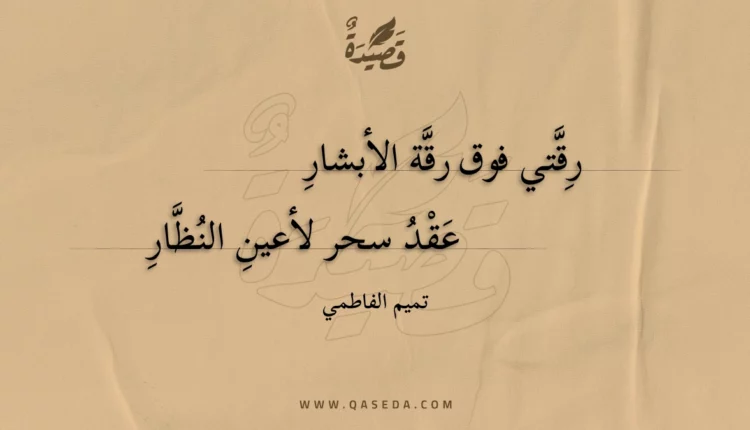 قَصِيْدَةٌ
رِقَّتي فوق رقَّة الأبشارِ
عَقْدُ سحر لأعينِ النُظَّارِ
تميم الفاطمي
WWW.QASEDA.COM